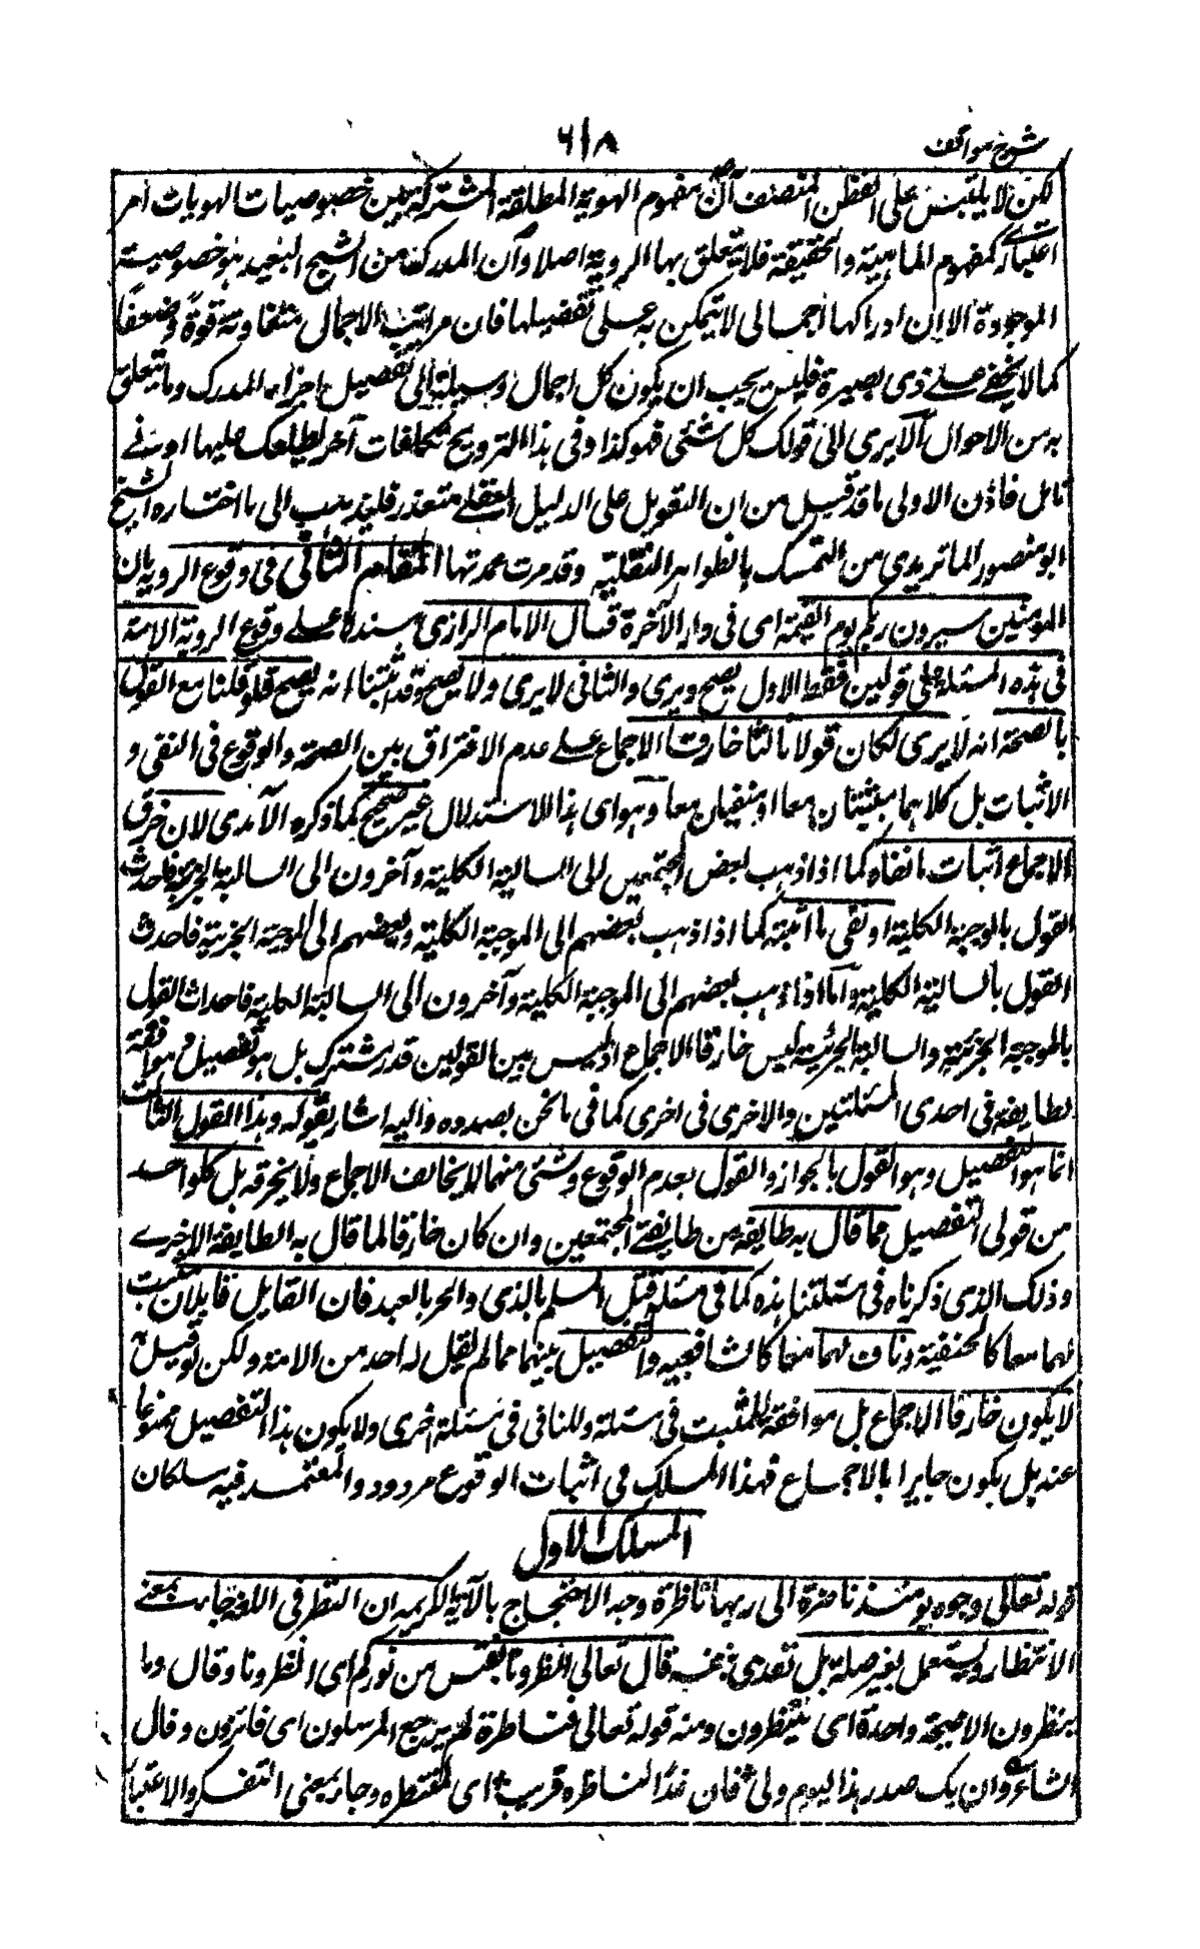 شرح مواقف
٦١٨
لكن لا يلتبس على الفطن المنصف ان مفهوم الهوية المطلقة المشتركة بين خصوصيات الهويات امر
اعتبارى كمفهوم الماهية والحقيقة فلا تتعلق بها الروية اصلا وآن المدرك من الشبح البعيد هو خصوصية
الموجودة الا ان ادراكها اجمالى لا يتمكن به على تفصيلها فان مراتب الاجمال متفاوتة قوة وضعفا
كما لا يخفى على ذى بصيرة فليس يجب ان يكون كل اجمال وسيلة الى تفصيل اجزاء المدرك وما يتعلق
به من الاحوال ألا يرى الى قولك كل شئى فهو كذا وفى هذا الترويج تكلفات آخر يطلعك عليها ادنى
تامل فاذن الاولى ما قد قيل من ان التعويل على الدليل العقلى متعذر فليذهب الى ما اختاره الشيخ
ابو منصور الماتريدى من التمسك بالظواهر النقلية وقد مرت عمدتها المقام الثانى فى وقوع الروية ان
المومنين سيرون ربهم يوم القيمة اى فى دار الآخرة قال الامام الرازى مستدلا على وقوع الروية الامة
فى هذه المسئلة على قولين فقط الاول يصح ويرى والثانى لا يرى ولا يصح وقد اثبتنا انه يصح فلو قلنا مع القول
بالصحة انه لا يرى لكان قولا ثالثا خارقا للاجماع على عدم الافتراق بين الصحة والوقوع فى النفى و
الاثبات بل كلاهما مثبتان معا او منفيان معا وهو اى هذا الاستدلال غير صحيح كما ذكره الآمدى لان خرق
الاجماع اثبات ما نفاه كما اذا ذهب بعض المجتهدين الى السالبة الكلية وآخرون الى السالبة الجزئية فاحدث
القول بالموجبة الكلية او نفى ما اثبته كما اذا ذهب بعضهم الى الموجبة الكلية وبعضهم الى الموجبة الجزئية فاحدث
القول بالسالبة الكلية وآما اذا ذهب بعضهم الى الموجبة الكلية وآخرون الى السالبة الكلية فاحداث القول
بالموجبة الجزئية والسالبة الجزئية ليس خارقا للاجماع اذ ليس بين القولين قدر مشترك بل هو تفصيل وموافقة
لطايفة فى احدى المسئلتين والاخرى فى اخرى كما فى ما نحن بصدده واليه اشار بقوله وهذا القول الثالث
انما هو التفصيل وهو القول بالجواز والقول بعدم الوقوع وشئى منهما لا يخالف الاجماع ولا يخرقه بل كل واحد
من قولى التفصيل مما قال به طايفة من طايفتى المجتمعين وان كان خارقا لما قال به الطايفة الاخرى
وذلك الذى ذكرناه فى مسئلتنا هذه كما فى مسئلة قتل المسلم بالذمى والحر بالعبد فان القايل قايلان مثبت
لهما معا كالحنفية وناف لهما معا كالشافعية والتفصيل بينهما مما لم يقل به احد من الامة ولكن لو قيل به
لا يكون خارقا للاجماع بل موافقة للمثبت فى مسئلة وللنافى فى مسئلة اخرى ولا يكون هذا التفصيل ممنوعا
عنه بل يكون جايزا بالاجماع فهذا المسلك فى اثبات الوقوع مردود والمعتمد فيه مسلكان
المسلك الاول
قوله تعالى وجوه يومئذ ناضرة الى ربها ناظرة وجه الاحتجاج بالآية الكريمة ان النظر فى اللغة جاء بمعنى
الانتظار ويستعمل بغير صلة بل تعدى بنفسه قال تعالى انظرونا نقتبس من نوركم اى انتظرونا وقال وما
ينظرون الا صيحة واحدة اى ينتظرون ومنه قوله تعالى فناظرة بم يرجع المرسلون اى فائزون وقال
الشاعر وان يك صدر هذا اليوم ولى فان غدا لناظره قريب اى لمنتظره وجاء بمعنى التفكر والاعتبار